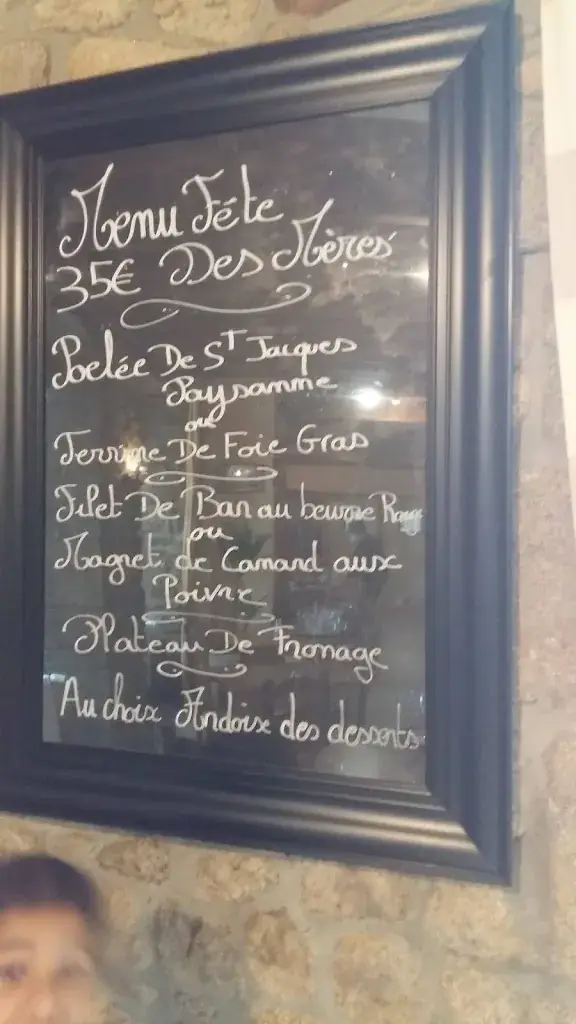 Menu Fête
35€ Des Mères
Poelée De St Jacques
Paysanne
ou
Terrine De Foie Gras
Filet De Bar au beurre Rouge
ou
Magret de Canard aux
Poivre
Plateau De Fromage
Au choix Ardoise des desserts